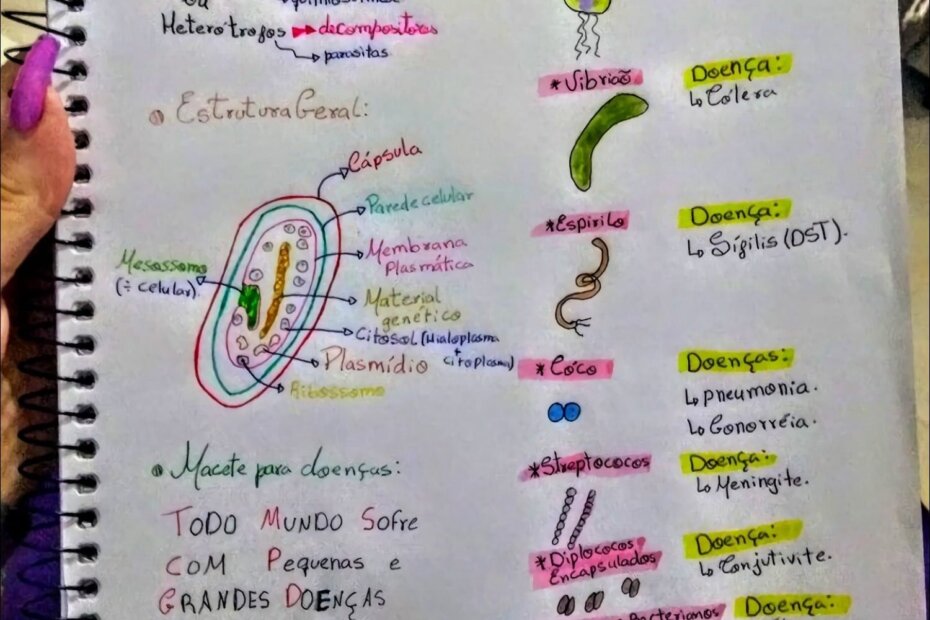 ou
Heterótrofos decompositores
parasitas
Estrutura Geral:
Cápsula
Parede celular
Membrana
Plasmática
Mesossomo
(÷ celular).
Material
genético
Citosol (Hialoplasma
+
citoplasma)
Plasmídio
Ribossomo
Macete para doenças:
TODO MUNDO SOFRE
COM Pequenas e
GRANDES DOENÇAS
*Vibrião
Doença:
↳ Cólera
*Espirilo
Doença:
↳ Sífilis (DST).
*Cóco
Doenças:
↳ pneumonia.
↳ Gonorréia.
*Streptococos
Doença:
↳ Meningite.
*Diplococos
Encapsulados
Doença:
↳ Conjutivite.
Bacterianos
Doença: